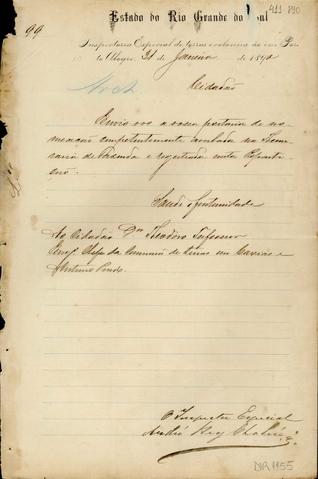 411 890
99
Estado do Rio Grande do Sul
Inspectoria Especial de terras e colonisação em Por-
to Alegre, 21 de Janeiro de 1892
Cidadão
Envio-vos a vossa portaria de no-
meação competentemente averbada na Thesou-
raria de Fazenda e registrada nesta Reparti-
ção.
Saude e fraternidade
Ao Cidadão Dr.
Eng.º Chefe da Commissão de terras em Caxias e
Antonio Prado.
O Inspector Especial
André
DIR 1155